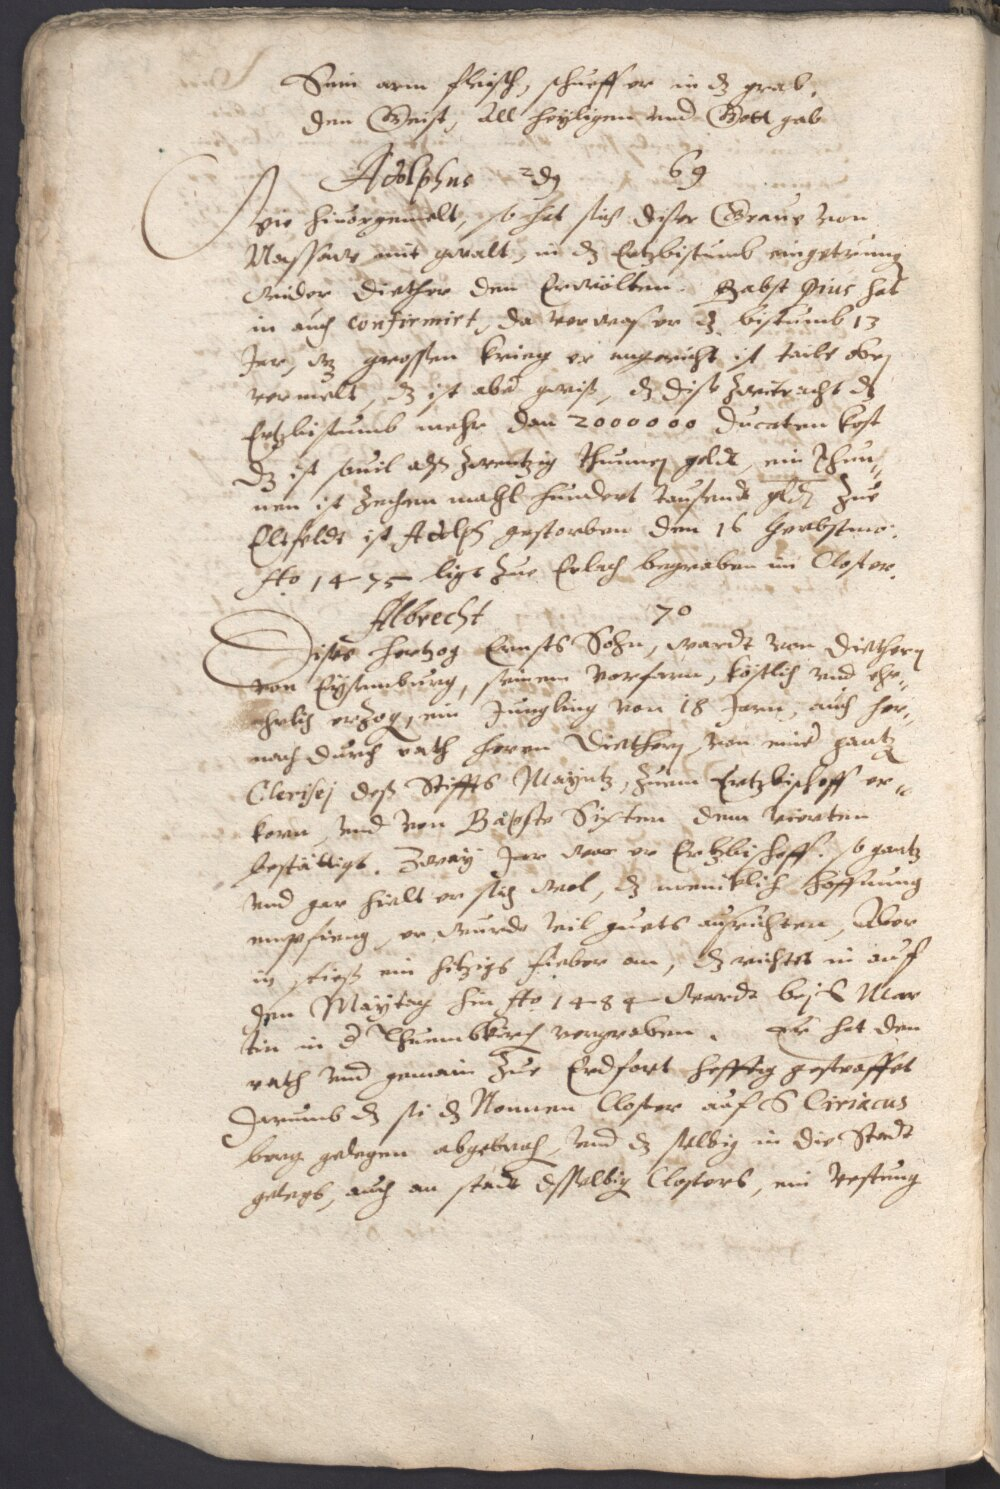 Sein arm fleisch, schueff er in dz grab,
Den Geist, all heyligen und Gott gab
Adolphus 2dg 69
Wie hievorgemelt, so hat sich diser Grave von
Nassaw mit gwalt, in dz Ertzbistumb eingetrung
wider Diether den Erwölten. Babst Pius hat
in auch confirmirt, da verwas er dz bistumb 13
Jar, wz grossen krieg er angericht ist tails oben
vermelt, dz ist aber gwiss, dz dise zwitracht dz
Ertzbistumb mehr dan 2000000 Ducaten kost
dz ist sovil alss zwentzig Thunnen geldt, ein Thun-
nen ist zechen mahl hundert tausendt gldn Zue
Eltfeldt ist Adolph gestorben den 16 Herbstmo:
Ao 1475 ligt zue Erbach begraben im Closter.
Albrecht 70
Dises Hertzog Ernsts Sohn, wardt von Diethern
von Eysenburg, seinem vorfarn, köstlich und ehr-
ehrlich erzog, ein Jungling von 18 Jarn, auch her-
nach durch rath herrn Diethern, von einer gantz
Clerisej dess Stiffts Mayntz, zuem Ertzbischoff er-
korn, und von Bapste Sixten dem vierten
bestättigt. Zway Jar war er Ertzbischoff. so gantz
und gar hielt er sich wol, dz meniklich hoffnung
empfieng, er wurde vil guets aussrichten, Aber
in stiess ein hitzigs fieber an, dz richtet in auf
den Maytag hin Ao 1484 wardt bej S Mar
tin in d Thuembkirch vergraben. Er hat den
rath und gemain Zue Erdfort hefftig gestraffet
Darumb dz sie dz Nonnen Closter auf S Ciriacus
berg gelegen abgebrach, und dz selbig in die Stadt
gelegt, auch an stadt desselbig Closters, ein Vestung